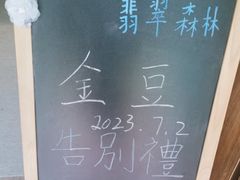 翡翠森林
金豆
2023.7.2
告別禮